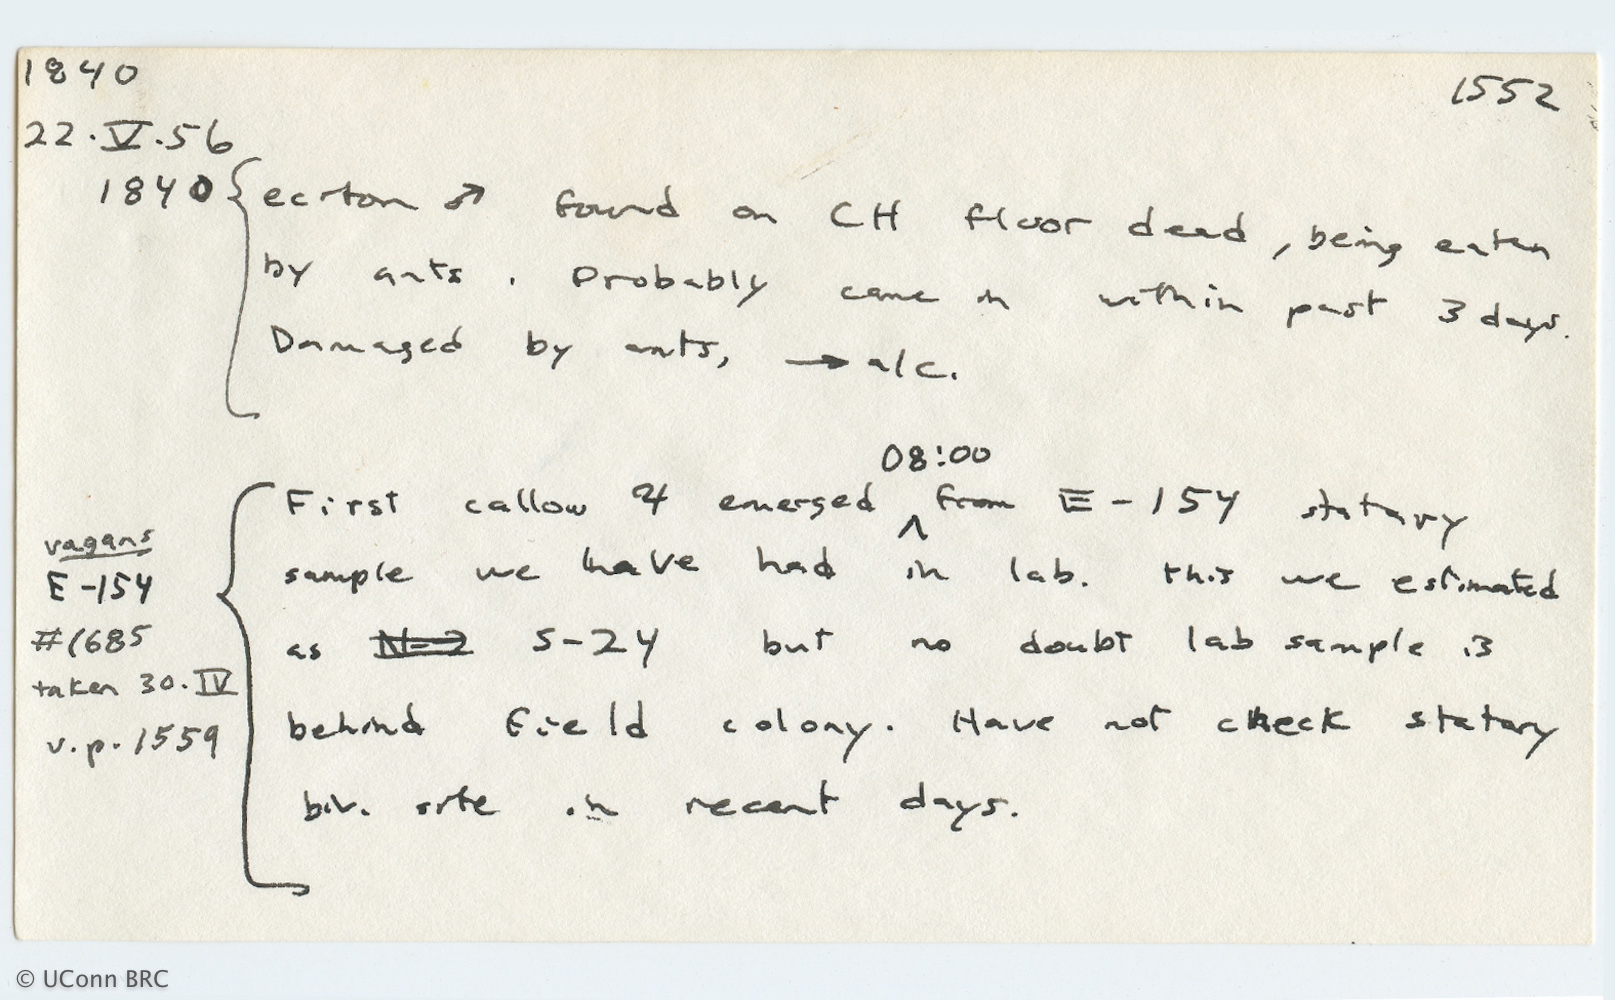 1840
1552
22.V.56
1840 { eciton ♂ found on CH floor dead, being eaten
by ants. Probably came in within past 3 days.
Damaged by ants, → alc.
08:00
First callow ☿ emerged ^ from E-154 statary
vagans
sample we have had in lab. this we estimated
E-154
#1685
as N-2 S-24 but no doubt lab sample is
taken 30.IV
behind field colony. Have not check statary
v.p. 1559
biv. site in recent days.
© UConn BRC